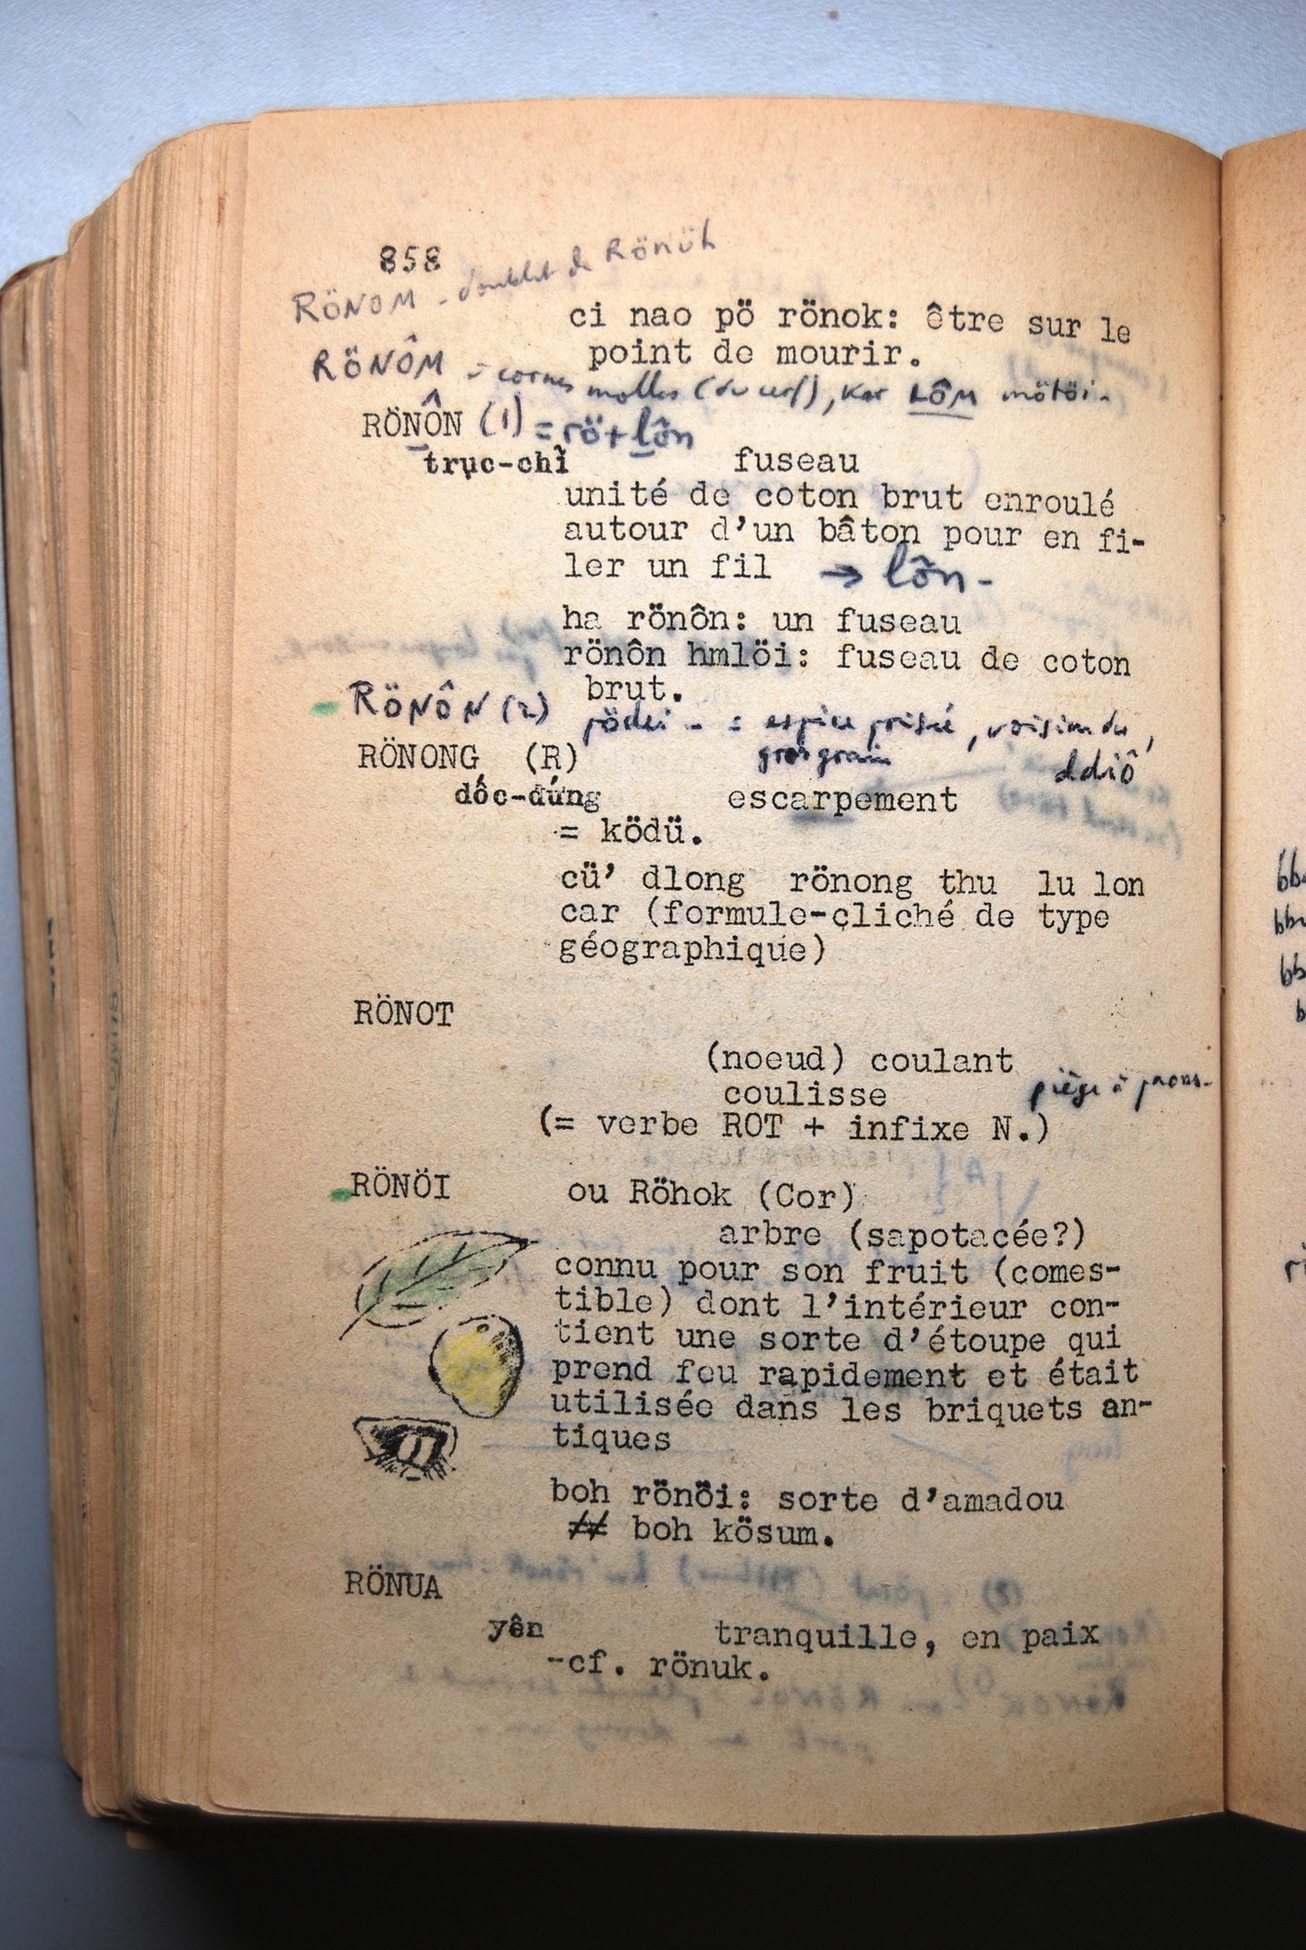 858
RÖNOM - doublet de Rönüh
ci nao pö rönok: être sur le
point de mourir.
RÖNÔM - cornes molles (du cerf), kar LÔM mötöi.
RÖNÔN (1) = rö + lôn
trục-chỉ fuseau
unité de coton brut enroulé
autour d'un bâton pour en fi-
ler un fil → lôn-
ha rönôn: un fuseau
rönôn hmlöi: fuseau de coton
brut.
RÖNÔN (2) pödei - = espèce prisée, voisin du
gros grain ddiô
RÖNONG (R)
dốc-đứng escarpement
= ködü.
cü' dlong rönong thu lu lon
car (formule-cliché de type
géographique)
RÖNOT
(noeud) coulant
coulisse piège à
(= verbe ROT + infixe N.)
RÖNÖI ou Röhok (Cor)
arbre (sapotacée?)
connu pour son fruit (comes-
tible) dont l'intérieur con-
tient une sorte d'étoupe qui
prend feu rapidement et était
utilisée dans les briquets an-
tiques
boh rönöi: sorte d'amadou
≠≠ boh kösum.
RÖNUA
yên tranquille, en paix
-cf. rönuk.